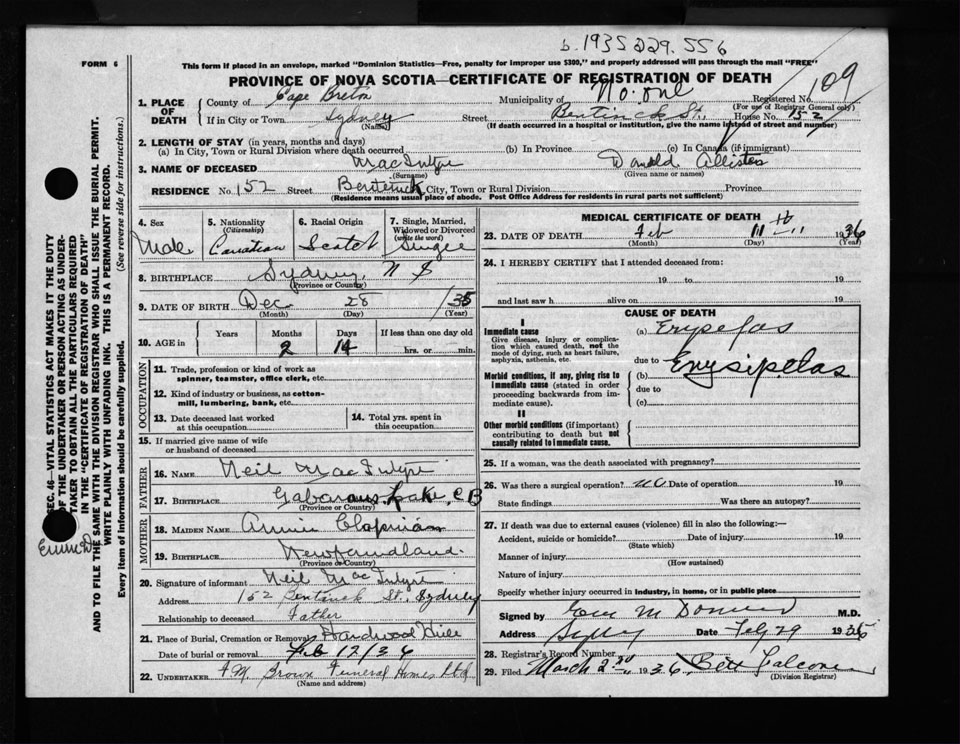 b. 1935 229. 556
FORM 6
This form if placed in an envelope, marked "Dominion Statistics—Free, penalty for improper use $300," and properly addressed will pass through the mail "FREE"
PROVINCE OF NOVA SCOTIA—CERTIFICATE OF REGISTRATION OF DEATH
109
1. PLACE OF DEATH
County of Cape Breton Municipality of No. one Registered No.
(For use of Registrar General only)
If in City or Town Sydney Street Bentinck St., House No. 152
(Name) (If death occurred in a hospital or institution, give the name instead of street and number)
2. LENGTH OF STAY (in years, months and days)
(a) In City, Town or Rural Division where death occurred (b) In Province (c) In Canada (if immigrant)
3. NAME OF DECEASED MacIntyre Donald Allister
(Surname) (Given name or names)
RESIDENCE No. 152 Street Bentinck City, Town or Rural Division Province
(Residence means usual place of abode. Post Office Address for residents in rural parts not sufficient)
4. Sex 5. Nationality (Citizenship) 6. Racial Origin 7. Single, Married, Widowed or Divorced (write the word)
Male Canadian Scotch Single
8. BIRTHPLACE Sydney, N S
(Province or Country)
9. DATE OF BIRTH Dec 28 /35
(Month) (Day) (Year)
10. AGE in Years Months Days If less than one day old
2 14 hrs. or min.
OCCUPATION
11. Trade, profession or kind of work as spinner, teamster, office clerk, etc.
12. Kind of industry or business, as cotton-mill, lumbering, bank, etc.
13. Date deceased last worked at this occupation
14. Total yrs. spent in this occupation
15. If married give name of wife or husband of deceased
FATHER
16. NAME Neil MacIntyre
17. BIRTHPLACE Gabarous Lake, C B
(Province or Country)
MOTHER
18. MAIDEN NAME Annie Chapman
19. BIRTHPLACE Newfoundland.
(Province or Country)
20. Signature of informant Neil MacIntyre
Address 152 Bentinck St., Sydney
Relationship to deceased Father
21. Place of Burial, Cremation or Removal Hardwood Hill
Date of burial or removal Feb 12/36
22. UNDERTAKER Brown Funeral Homes Ltd
(Name and address)
MEDICAL CERTIFICATE OF DEATH
23. DATE OF DEATH Feb 11 1936
(Month) (Day) (Year)
24. I HEREBY CERTIFY that I attended deceased from:
19 to 19
and last saw h alive on 19
CAUSE OF DEATH
I
Immediate cause
Give disease, injury or complication which caused death, not the mode of dying, such as heart failure, asphyxia, asthenia, etc.
(a) Erypefas
due to
Morbid conditions, if any, giving rise to immediate cause (stated in order proceeding backwards from immediate cause).
(b) Erysipelas
due to
(c)
II
Other morbid conditions (if important) contributing to death but not causally related to immediate cause.
25. If a woman, was the death associated with pregnancy?
26. Was there a surgical operation? no Date of operation 19
State findings Was there an autopsy?
27. If death was due to external causes (violence) fill in also the following:—
Accident, suicide or homicide? Date of injury 19
(State which)
Manner of injury
(How sustained)
Nature of injury
Specify whether injury occurred in industry, in home, or in public place
Signed by M.D.
Address Date Feb 29 1936
28. Registrar's Record Number
29. Filed March 2nd 1936 Falcone
(Division Registrar)
SEC. 46—VITAL STATISTICS ACT MAKES IT THE DUTY
OF THE UNDERTAKER OR PERSON ACTING AS UNDER-
TAKER TO OBTAIN ALL THE PARTICULARS REQUIRED
IN THE "CERTIFICATE OF REGISTRATION OF DEATH"
AND TO FILE THE SAME WITH THE DIVISION REGISTRAR WHO SHALL ISSUE THE BURIAL PERMIT.
WRITE PLAINLY WITH UNFADING INK. THIS IS A PERMANENT RECORD.
Every item of information should be carefully supplied. (See reverse side for instructions.)